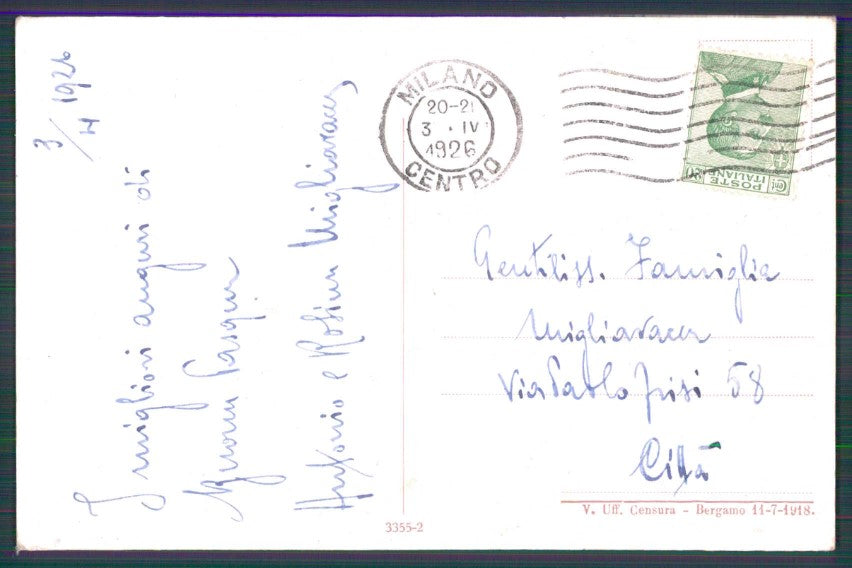 3/4 1926
I migliori auguri di
Buona Pasqua
Antonio e Rosina Migliavacca
MILANO
20-21
3 · IV
1926
CENTRO
POSTE
ITALIANE
Gentiliss. Famiglia
Migliavacca
Via Paolo Frisi 58
Città
V. Uff. Censura - Bergamo 11-7-1918.
3355-2